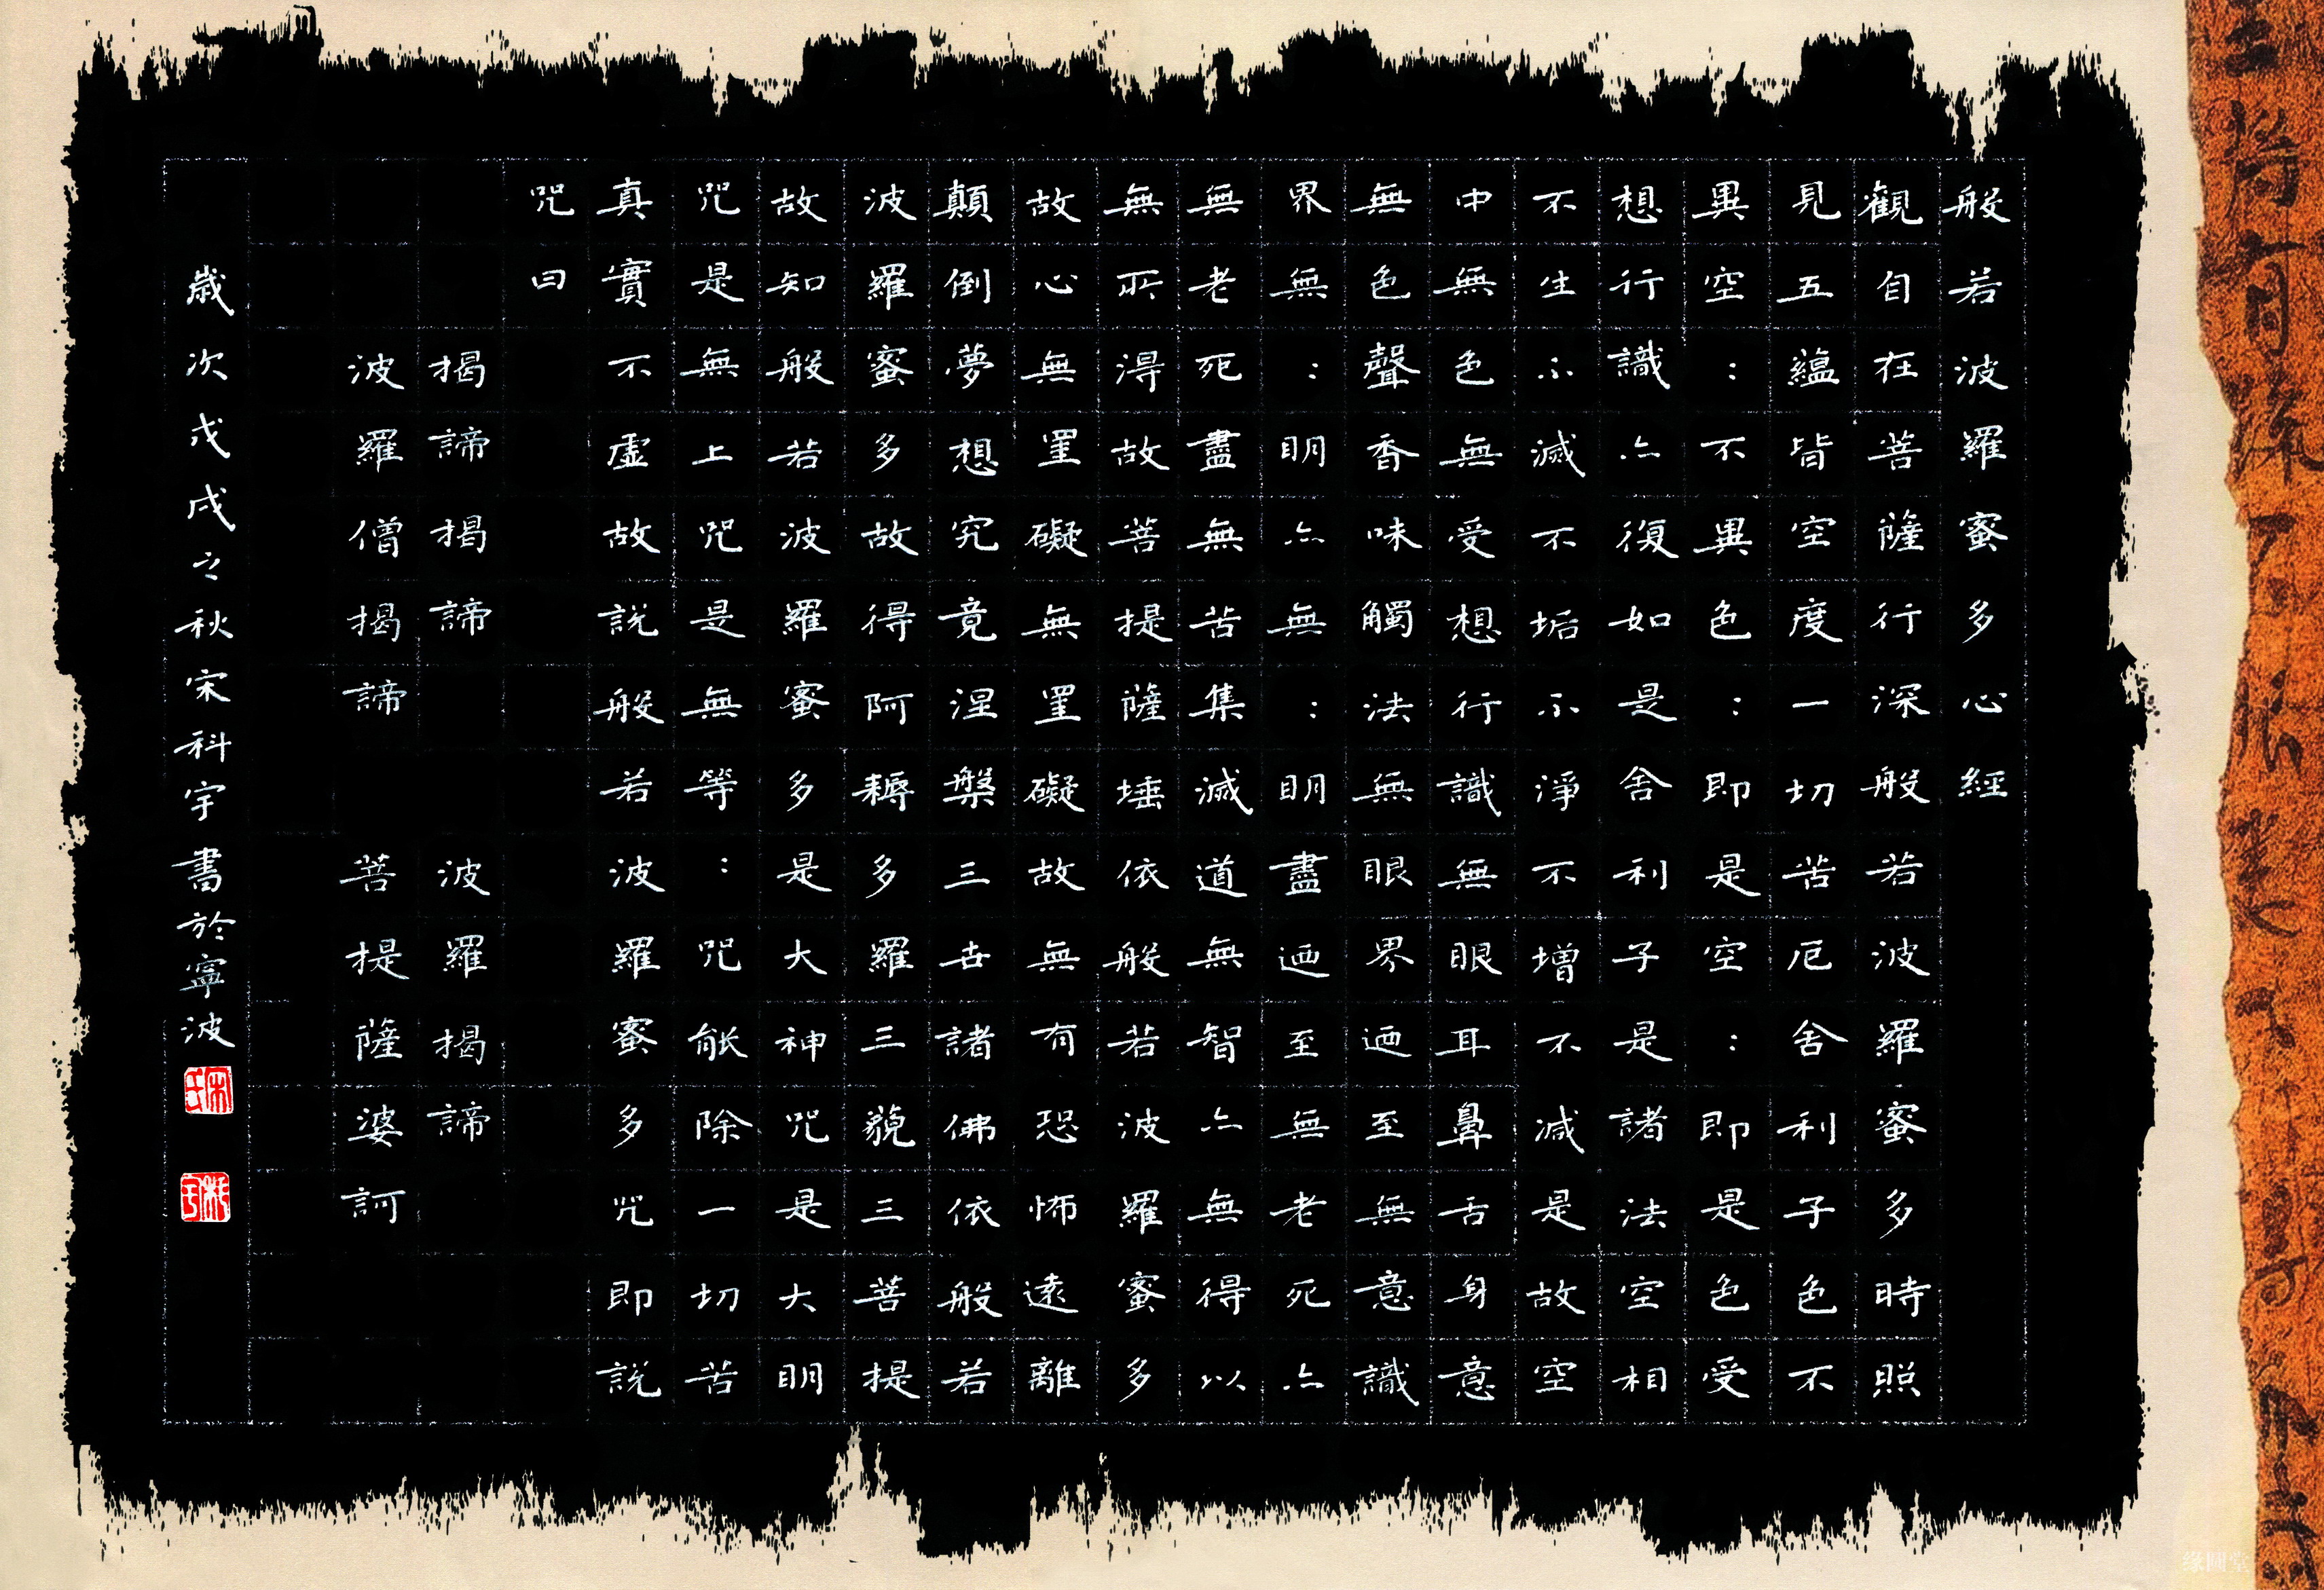 般若波羅蜜多心經
觀自在菩薩行深般若波羅蜜多時照
見五蘊皆空度一切苦厄舍利子色不
異空：不異色：即是空：即是色受
想行識亦復如是舍利子是諸法空相
不生不滅不垢不淨不增不減是故空
中無色無受想行識無眼耳鼻舌身意
無色聲香味觸法無眼界迺至無意識
界無：明亦無：明盡迺至無老死亦
無老死盡無苦集滅道無智亦無得以
無所得故菩提薩埵依般若波羅蜜多
故心無罣礙無罣礙故無有恐怖遠離
顛倒夢想究竟涅槃三世諸佛依般若
波羅蜜多故得阿耨多羅三藐三菩提
故知般若波羅蜜多是大神咒是大明
咒是無上咒是無等：咒能除一切苦
真實不虛故說般若波羅蜜多咒即說
咒曰
揭諦揭諦 波羅揭諦
波羅僧揭諦 菩提薩婆訶
歲次戊戌之秋宋科宇書於寧波
宋氏
科宇